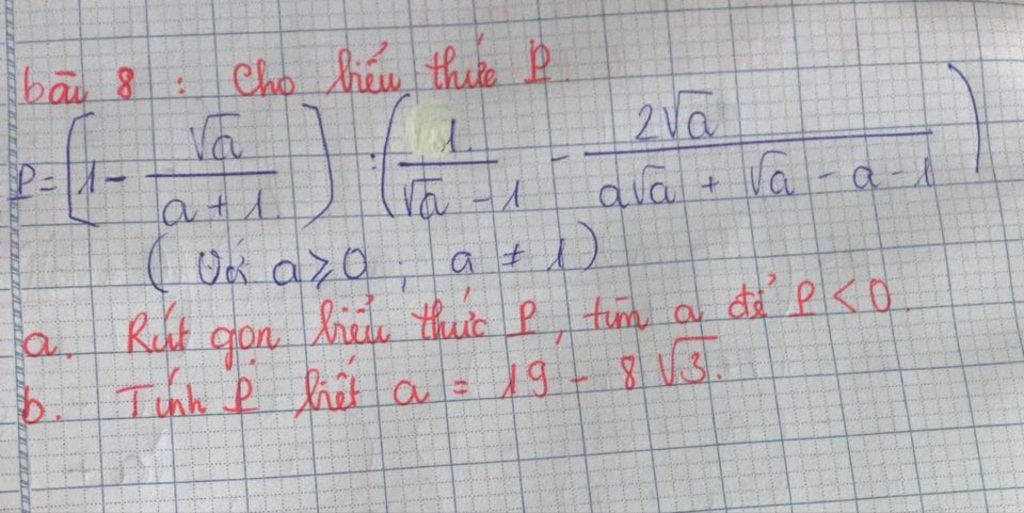 bài 8 : Cho biểu thức P.
P = [1 - √a / (a + 1)] : (1 / (√a - 1) - 2√a / (a√a + √a - a - 1))
( Với a ≥ 0 ; a ≠ 1 )
a. Rút gọn biểu thức P, tìm a để P < 0.
b. Tính P biết a = 19 - 8√3.